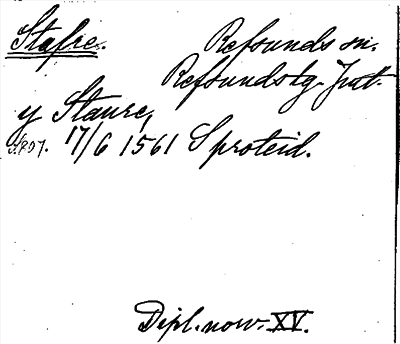 Stafre. Refsunds sn.
Refsundstg. Jmt.
y Staure,
S. 807. 17/6 1561 Sproteid.
Dipl. norv. XV.